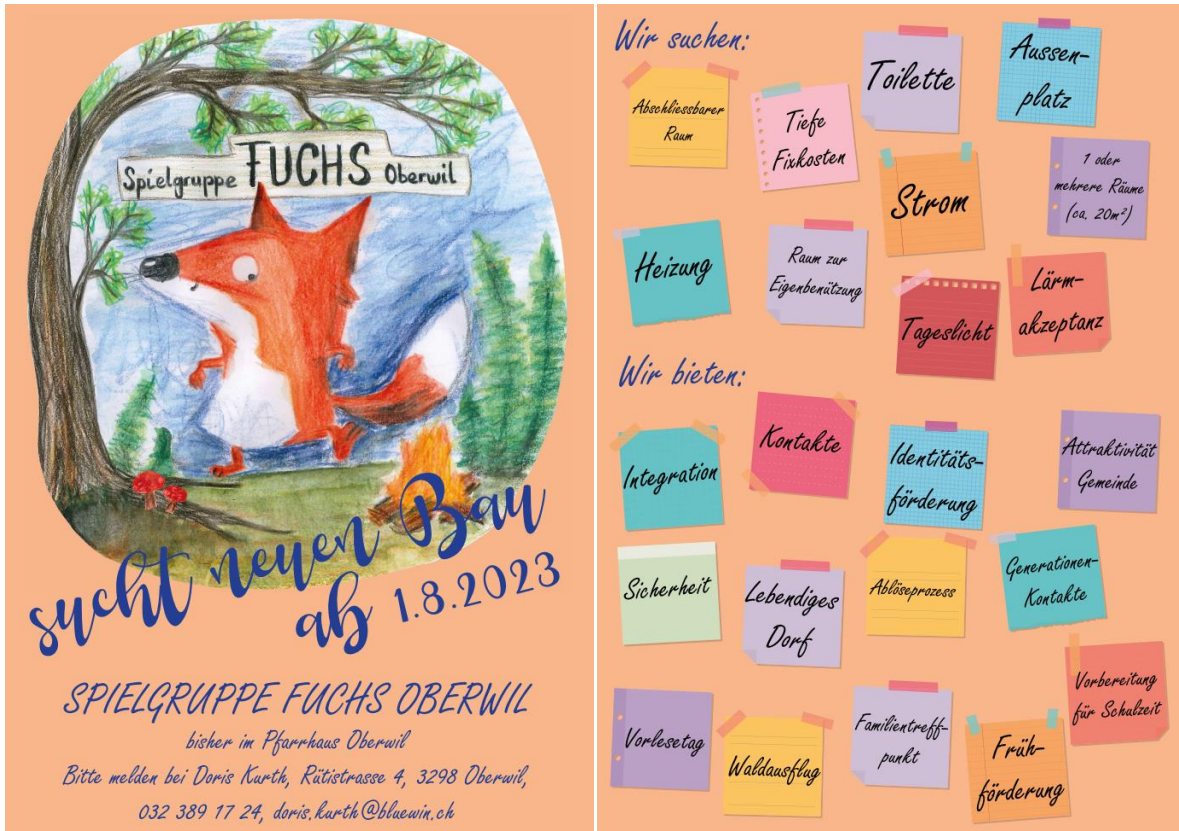 Spielgruppe FUCHS Oberwil
sucht neuen Bau
ab 1.8.2023
SPIELGRUPPE FUCHS OBERWIL
bisher im Pfarrhaus Oberwil
Bitte melden bei Doris Kurth, Rütistrasse 4, 3298 Oberwil,
032 389 17 24, doris.kurth@bluewin.ch
Wir suchen:
Abschliessbarer
Raum
Tiefe
Fixkosten
Toilette
Aussen-
platz
Strom
1 oder
mehrere Räume
(ca. 20m²)
Heizung
Raum zur
Eigenbenützung
Tageslicht
Lärm-
akzeptanz
Wir bieten:
Integration
Kontakte
Identitäts-
förderung
Attraktivität
Gemeinde
Sicherheit
Lebendiges
Dorf
Ablöseprozess
Generationen-
Kontakte
Vorlesetag
Waldausflug
Familientreff-
punkt
Früh-
förderung
Vorbereitung
für Schulzeit